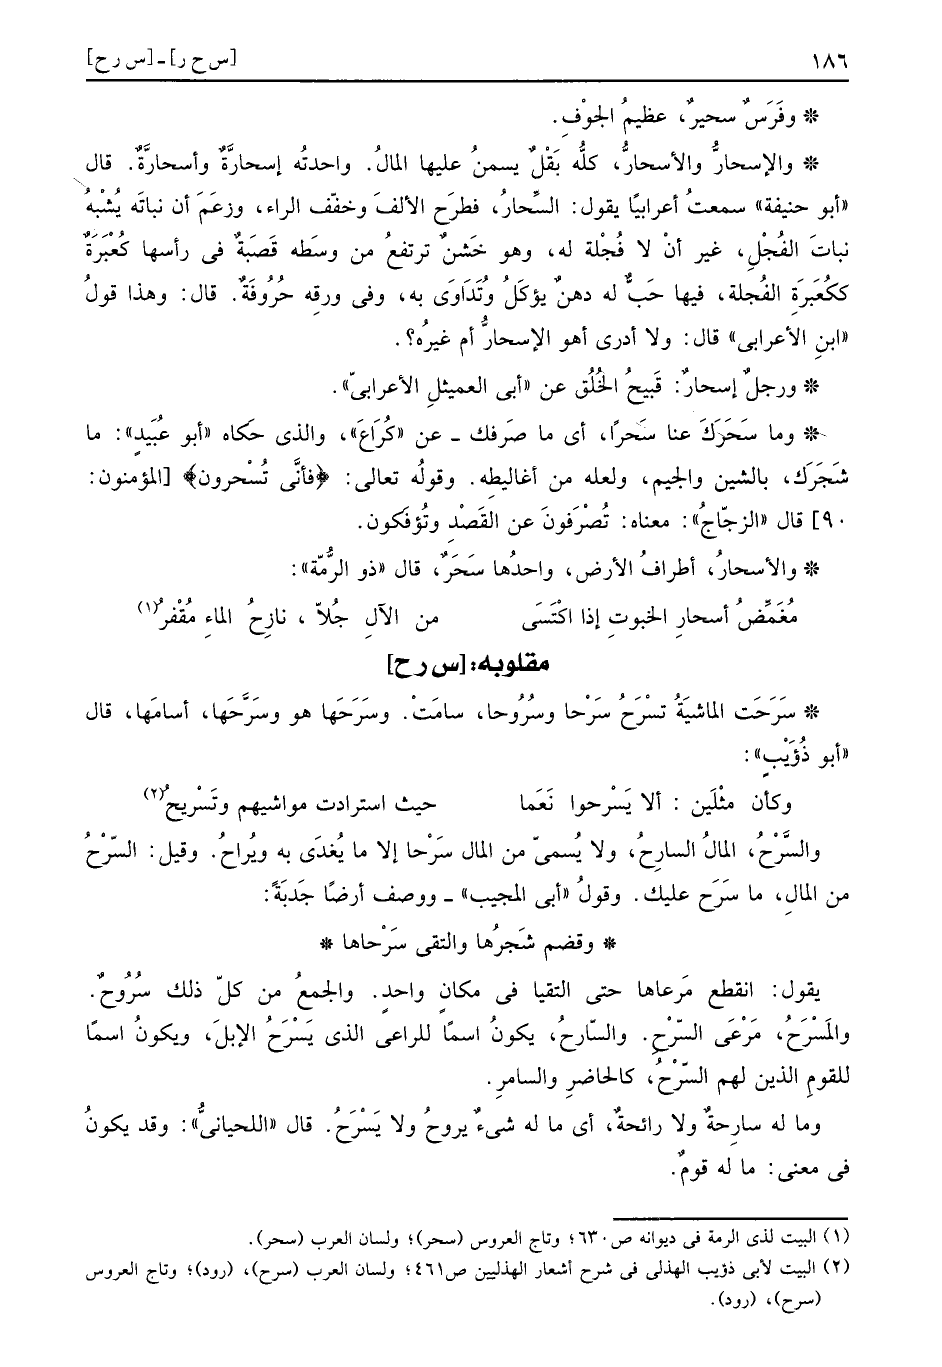 ١٨٦ [س ح ر] ـ [س ر ح]
* وفَرَسٌ سحيرٌ، عظيمُ الجوْفِ.
* والإسحارُّ والأسحارُّ، كلُّه بَقْلٌ يسمنُ عليها المالُ. واحدتُه إسحارَّةٌ وأسحارَّةٌ. قال
«أبو حنيفة» سمعتُ أعرابيًا يقول: السِّحارُ، فطرَح الألفَ وخفّف الراء، وزعَمَ أن نباتَه يُشْبهُ
نباتَ الفُجْلِ، غير أنْ لا فُجْلة له، وهو خَشنٌ ترتفعُ من وسَطه قَصَبةٌ فى رأسها كُعْبَرَةٌ
ككُعبَرَةِ الفُجلة، فيها حَبٌّ له دهنٌ يؤكَلُ وتُدَاوَى به، وفى ورقِه حُرُوفَةٌ. قال: وهذا قولُ
«ابنِ الأعرابى» قال: ولا أدرى أهو الإسحارُّ أم غيرُه؟.
* ورجلٌ إسحارٌ: قَبيحُ الخُلُق عن «أبى العميثلِ الأعرابىّ».
* وما سَحَرَكَ عنا سَحرًا، أى ما صَرفك ـ عن «كُرَاعَ»، والذى حكاه «أبو عبَيدٍ»: ما
شَجَرَك، بالشين والجيم، ولعله من أغاليطِه. وقولُه تعالى: ﴿فأنَّى تُسْحرون﴾ [المؤمنون:
٩٠] قال «الزجّاجُ»: معناه: تُصْرَفونَ عن القَصْدِ وتُؤفكون.
* والأسحارُ، أطرافُ الأرض، واحدُها سَحَرٌ، قال «ذو الرُّمّة»:
مُغَمِّضُ أسحارِ الخبوتِ إذا اكْتَسَى من الآلِ جُلاّ ، نازِحُ الماءِ مُقْفرُ(١)
مقلوبه: [س ر ح]
* سَرَحَت الماشيَةُ تسْرَحُ سَرْحا وسُرُوحا، سامَتْ. وسَرَحَها هو وسَرَّحَها، أسامَها، قال
«أبو ذُؤَيْبٍ»:
وكأن مثْلَين : ألا يَسْرحوا نَعَما حيث استرادت مواشيهم وتَسْريحُ(٢)
والسَّرْحُ، المالُ السارِحُ، ولا يُسمىّ من المال سَرْحا إلا ما يُغدَى به ويُراحُ. وقيل: السّرْحُ
من المالِ، ما سَرَح عليك. وقولُ «أبى المجيب» ـ ووصف أرضًا جَدبَةً:
* وقضم شجرُها والتقى سَرْحاها *
يقول: انقطع مَرعاها حتى التقيا فى مكانٍ واحدٍ. والجمعُ من كلّ ذلك سرُوحٌ.
والمَسْرَحُ، مَرْعَى السّرْحِ. والسّارِحُ، يكونُ اسمًا للراعى الذى يَسْرَحُ الإبلَ، ويكونُ اسمًا
للقومِ الذين لهم السّرْحُ، كالحاضرِ والسامرِ.
وما له سارِحةٌ ولا رائحةٌ، أى ما له شىءٌ يروحُ ولا يَسْرَحُ. قال «اللحيانىُّ»: وقد يكونُ
فى معنى: ما له قومٌ.
(١) البيت لذى الرمة فى ديوانه ص٦٣٠؛ وتاج العروس (سحر)؛ ولسان العرب (سحر).
(٢) البيت لأبى ذؤيب الهذلى فى شرح أشعار الهذليين ص٤٦١؛ ولسان العرب (سرح)، (رود)؛ وتاج العروس
(سرح)، (رود).